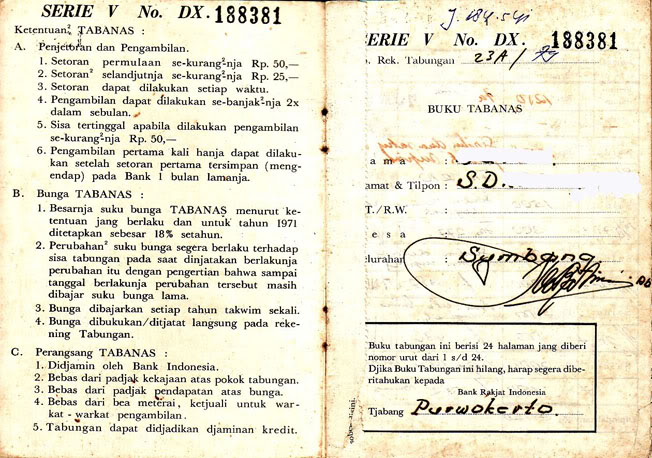 SERIE V No. DX. 188381
Ketentuan² TABANAS :
A. Penjetoran dan Pengambilan.
1. Setoran permulaan se-kurang²nja Rp. 50,—
2. Setoran² selandjutnja se-kurang²nja Rp. 25,—
3. Setoran dapat dilakukan setiap waktu.
4. Pengambilan dapat dilakukan se-banjak²nja 2x
dalam sebulan.
5. Sisa tertinggal apabila dilakukan pengambilan
se-kurang²nja Rp. 50,—
6. Pengambilan pertama kali hanja dapat dilaku-
kan setelah setoran pertama tersimpan (meng-
endap) pada Bank 1 bulan lamanja.
B. Bunga TABANAS :
1. Besarnja suku bunga TABANAS menurut ke-
tentuan jang berlaku dan untuk tahun 1971
ditetapkan sebesar 18% setahun.
2. Perubahan² suku bunga segera berlaku terhadap
sisa tabungan pada saat dinjatakan berlakunja
perubahan itu dengan pengertian bahwa sampai
tanggal berlakunja perubahan tersebut masih
dibajar suku bunga lama.
3. Bunga dibajarkan setiap tahun takwim sekali.
4. Bunga dibukukan/ditjatat langsung pada reke-
ning Tabungan.
C. Perangsang TABANAS :
1. Didjamin oleh Bank Indonesia.
2. Bebas dari padjak kekajaan atas pokok tabungan.
3. Bebas dari padjak pendapatan atas bunga.
4. Bebas dari bea meterai, ketjuali untuk war-
kat-warkat pengambilan.
5. Tabungan dapat didjadikan djaminan kredit.
ERIE V No. DX. 188381
. Rek. Tabungan 23A/
BUKU TABANAS
ama :
amat & Tilpon : S.D.
T./R.W. :
esa :
elurahan : Sumbang
Buku tabungan ini berisi 24 halaman jang diberi
nomor urut dari 1 s/d 24.
Djika Buku Tabungan ini hilang, harap segera dibe-
ritahukan kepada
Bank Rakjat Indonesia
Tjabang Purwokerto